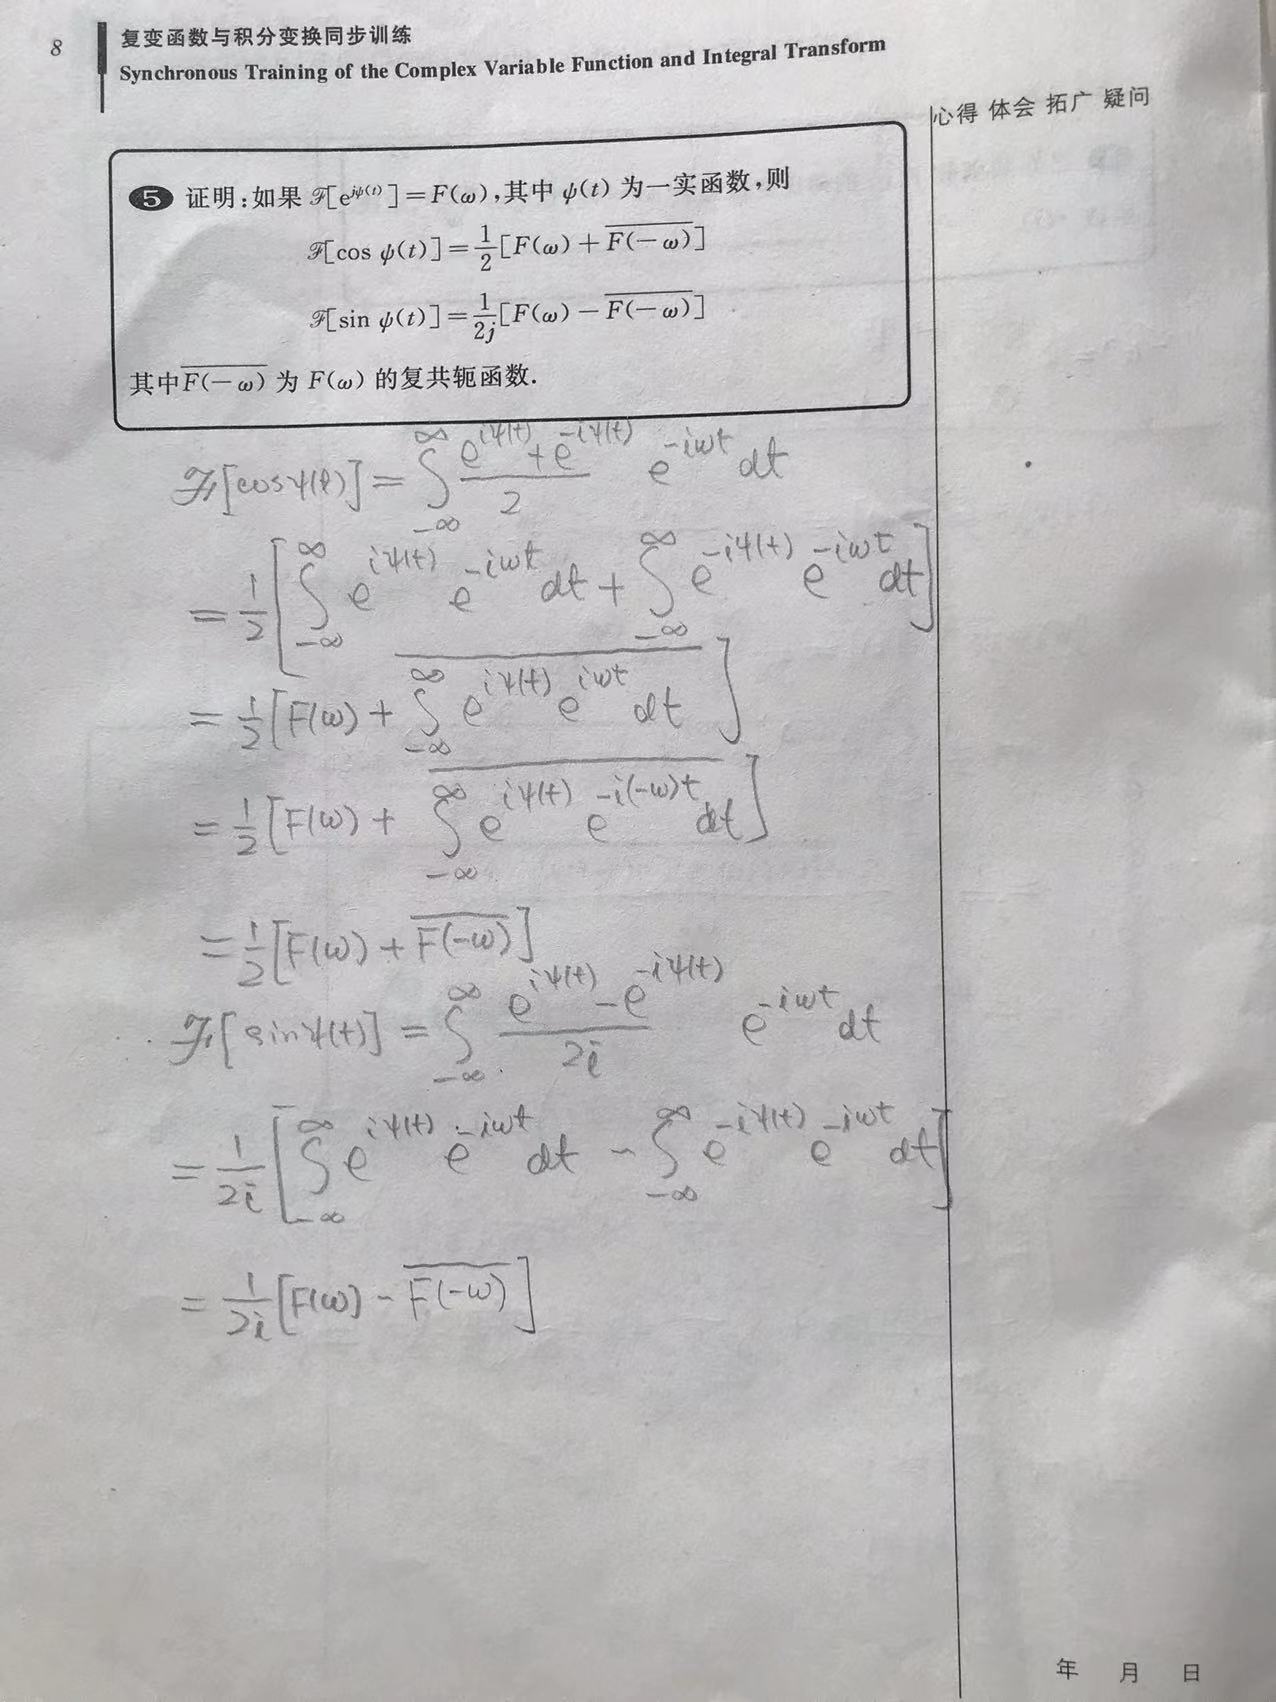 8
复变函数与积分变换同步训练
Synchronous Training of the Complex Variable Function and Integral Transform
心得 体会 拓广 疑问
5 证明:如果 ℱ[e^{jψ(t)}]=F(ω),其中 ψ(t) 为一实函数,则
ℱ[cos ψ(t)]=\frac{1}{2}[F(ω)+\overline{F(-ω)}]
ℱ[sin ψ(t)]=\frac{1}{2j}[F(ω)-\overline{F(-ω)}]
其中\overline{F(-ω)} 为 F(ω) 的复共轭函数.
ℱ[cosψ(t)]=\int_{-∞}^{∞}\frac{e^{iψ(t)}+e^{-iψ(t)}}{2} e^{-iωt}dt
=\frac{1}{2}[\int_{-∞}^{∞}e^{iψ(t)}e^{-iωt}dt+\int_{-∞}^{∞}e^{-iψ(t)}e^{-iωt}dt]
=\frac{1}{2}[F(ω)+\overline{\int_{-∞}^{∞}e^{iψ(t)}e^{iωt}dt}]
=\frac{1}{2}[F(ω)+\overline{\int_{-∞}^{∞}e^{iψ(t)}e^{-i(-ω)t}dt}]
=\frac{1}{2}[F(ω)+\overline{F(-ω)}]
ℱ[sinψ(t)]=\int_{-∞}^{∞}\frac{e^{iψ(t)}-e^{-iψ(t)}}{2i} e^{-iωt}dt
=\frac{1}{2i}[\int_{-∞}^{∞}e^{iψ(t)}e^{-iωt}dt-\int_{-∞}^{∞}e^{-iψ(t)}e^{-iωt}dt]
=\frac{1}{2i}[F(ω)-\overline{F(-ω)}]
年 月 日